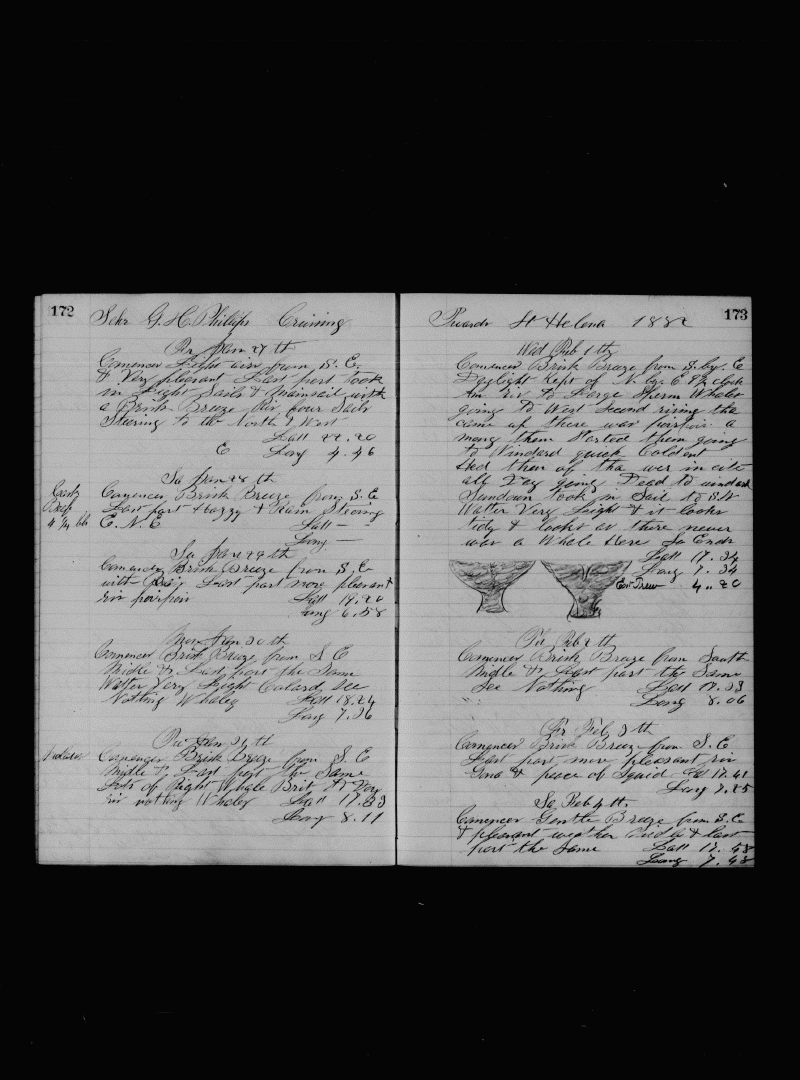 172
Schr G. H. Philips Cruising
Fr Jan 27 th
Comences Light airs from S. E.
& Very pleasant Last part took
in Light Sails & Mainsail with
a Brisk Breeze
Steering to the North & West
Latt 22.20
E Long 4.46
Sa Jan 28 th
Comences Brisk Breeze from S. E
Last part Hazzy & Rain Steering
E. N. E Latt —
Long —
Su Jan 29 th
Comences Brisk Breeze from S. E
with Last part more pleasant
Latt 19.20
Long 6.58
Mon Jan 30 th
Comences Brisk Breeze from S E
Midle & Last part the Same
Watter Very Light Colard, See
Nothing Whaley Latt 18.24
Long 7.36
Jan 31 th
Comences Brisk Breeze from S. E
Midle & Last part the Same
Lots of Right Whale Brit &
nothing Whaley Latt 17.33
Long 8.11
173
Towards St Helena 1882
Wed Feb 1 th
Comences Brisk Breeze from S. by. E
Daylight Kept of N. by. E
to Large Sperm Whales
going to West Second rising the
came up there was a
mong them Started them going
to Windard quick Coldent
all Day going Dead to windard
Sundown took in Sail to S.W
Watter Very Light & it looks
tidy & looks as there never
was a Whale Here So Ends
Latt 17.34
Long 7.34
4..20
Th Feb 2 th
Comences Brisk Breeze from South
Midle & Last part the Same
See Nothing Latt 17.33
Long 8.06
Fr Feb 3 th
Comences Brisk Breeze from S. E
Last part more pleasant
& peece of Squid Latt 17.41
Long 7.25
Sa Feb 4 th
Comences Gentle Breeze from S. E
& pleasant weather Midle & Last
part the Same Latt 17.58
Long 7.48